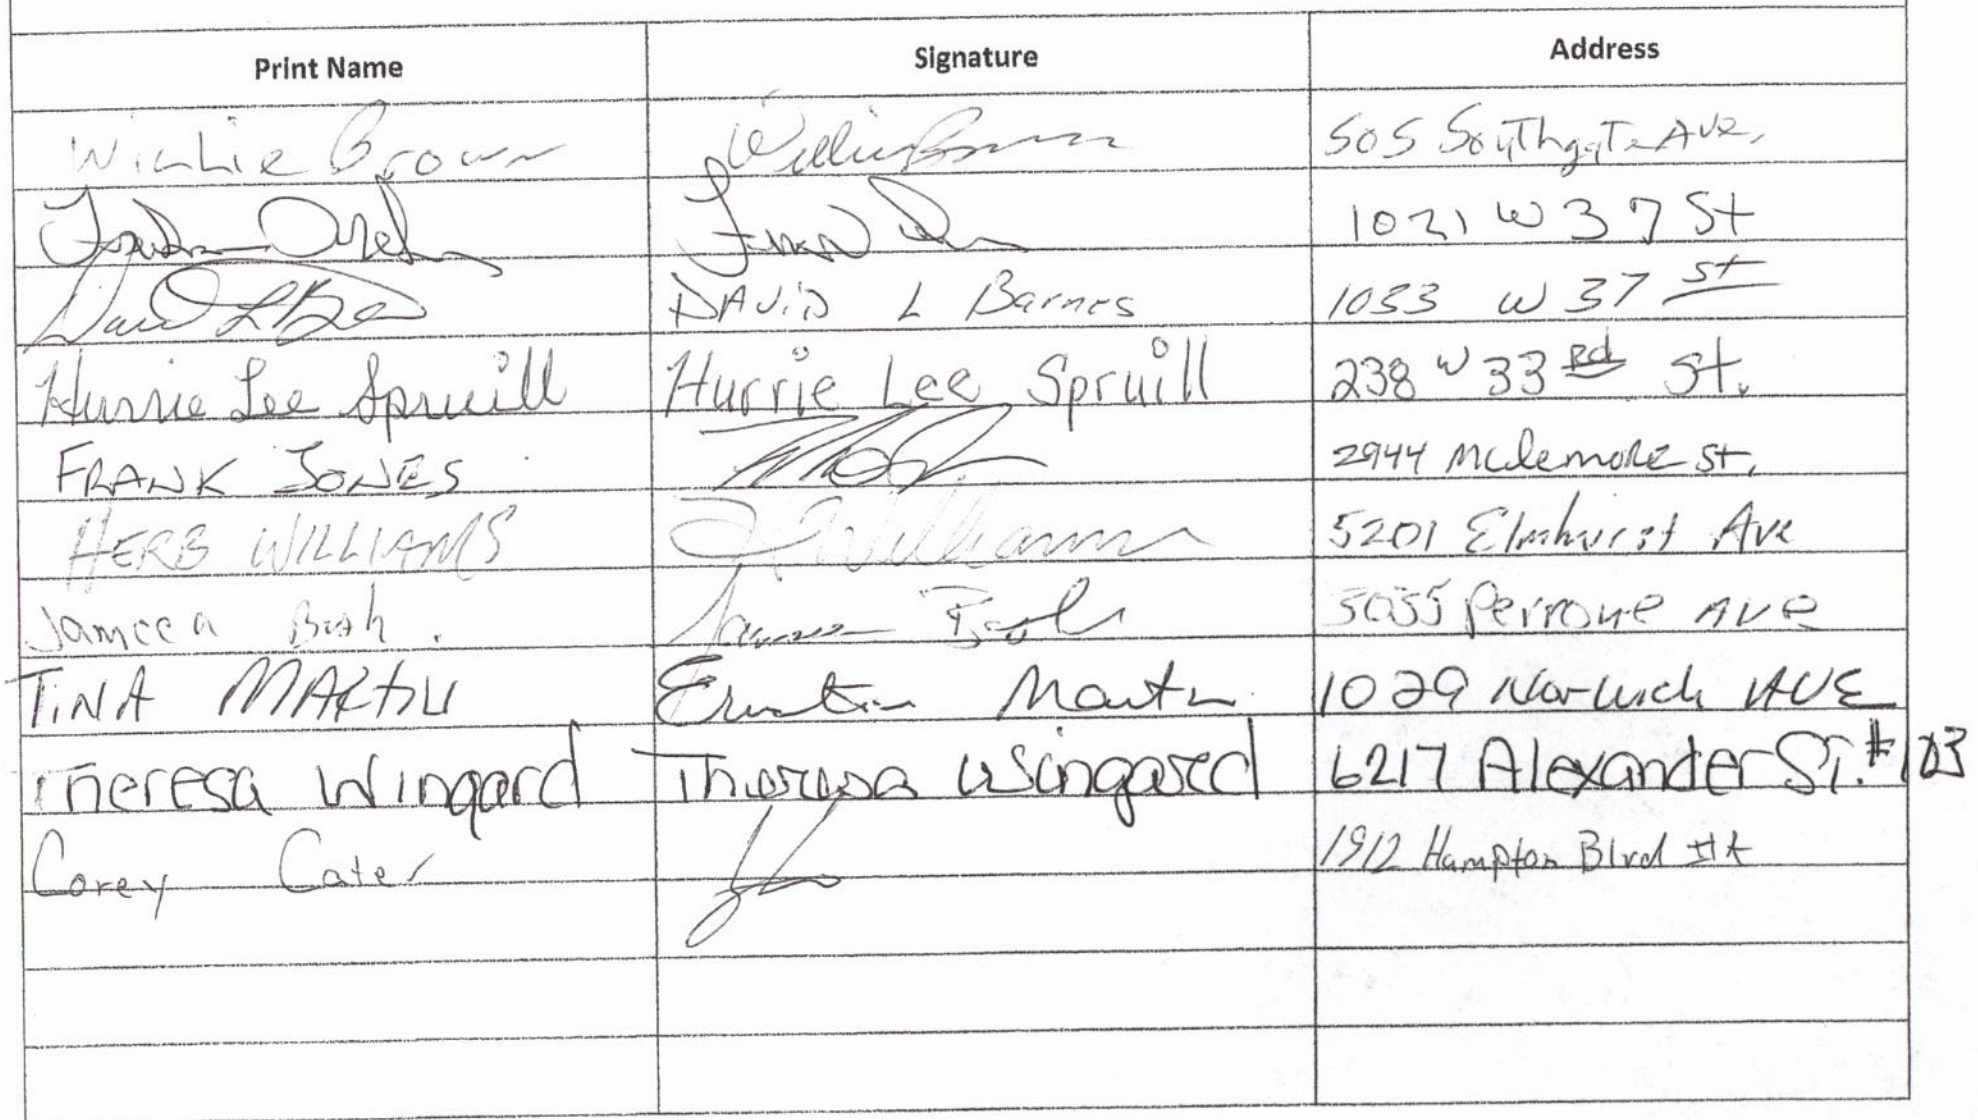 Print Name Signature Address
Willie Brown Willie Brown 505 Southgate Ave.
1021 W 37 St
David L DAVID L Barnes 1033 W 37 St
Hurrie Lee Spruill Hurrie Lee Spruill 238 W 33 Rd St.
FRANK JONES 2944 McLemore St.
HERB WILLIAMS H Williams 5201 Elmhurst Ave
Jameea Bush. Bush 5035 Perrone Ave
TINA MARTIN Martin 1029 Norwich AVE
Theresa Wingard Theresa Wingard 6217 Alexander ST. #103
Corey Cater 1912 Hampton Blvrd #A